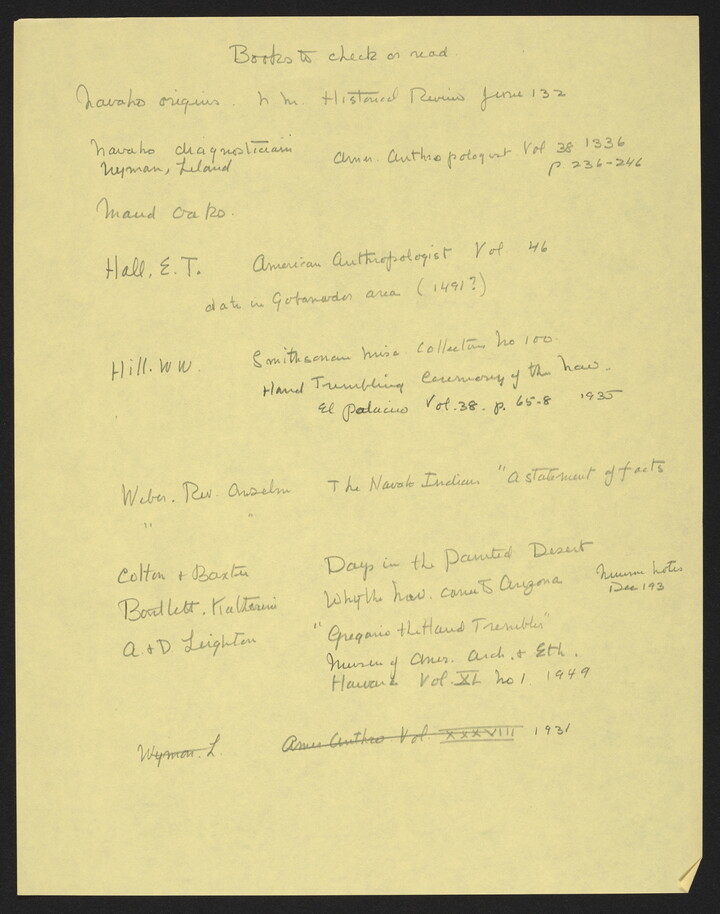 Books to check or read.
Navaho origins. N.M. Historical Review June 132
Navaho diagnosticians Amer. Anthropologist Vol 38 1336
Wyman, Leland p. 236-246
Maud Oakes.
Hall, E.T. American Anthropologist Vol 46
date in Gobernador area (1491?)
Hill. WW. Smithsonian Misc. Collection No 100
Hand Trembling Ceremony of the Nav.
El Palacio Vol. 38. p. 65-8 1935
Weber. Rev. Anselm The Navaho Indians "A statement of facts
" "
Colton & Baxter Days in the Painted Desert
Bartlett. Katharine Why the Nav. came to Arizona Museum Notes
Dec 193
A. & D Leighton "Gregorio the Hand Trembler"
Museum of Amer. Arch. & Eth.
Harvard Vol. XL No 1. 1949
Wyman. L. Amer Anthro Vol. XXXVIII 1931